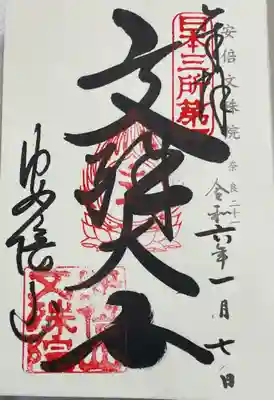 安倍文殊院
令和六年一月七日
奉拝
日本三所第
文殊大
安倍山
安倍山
文殊院